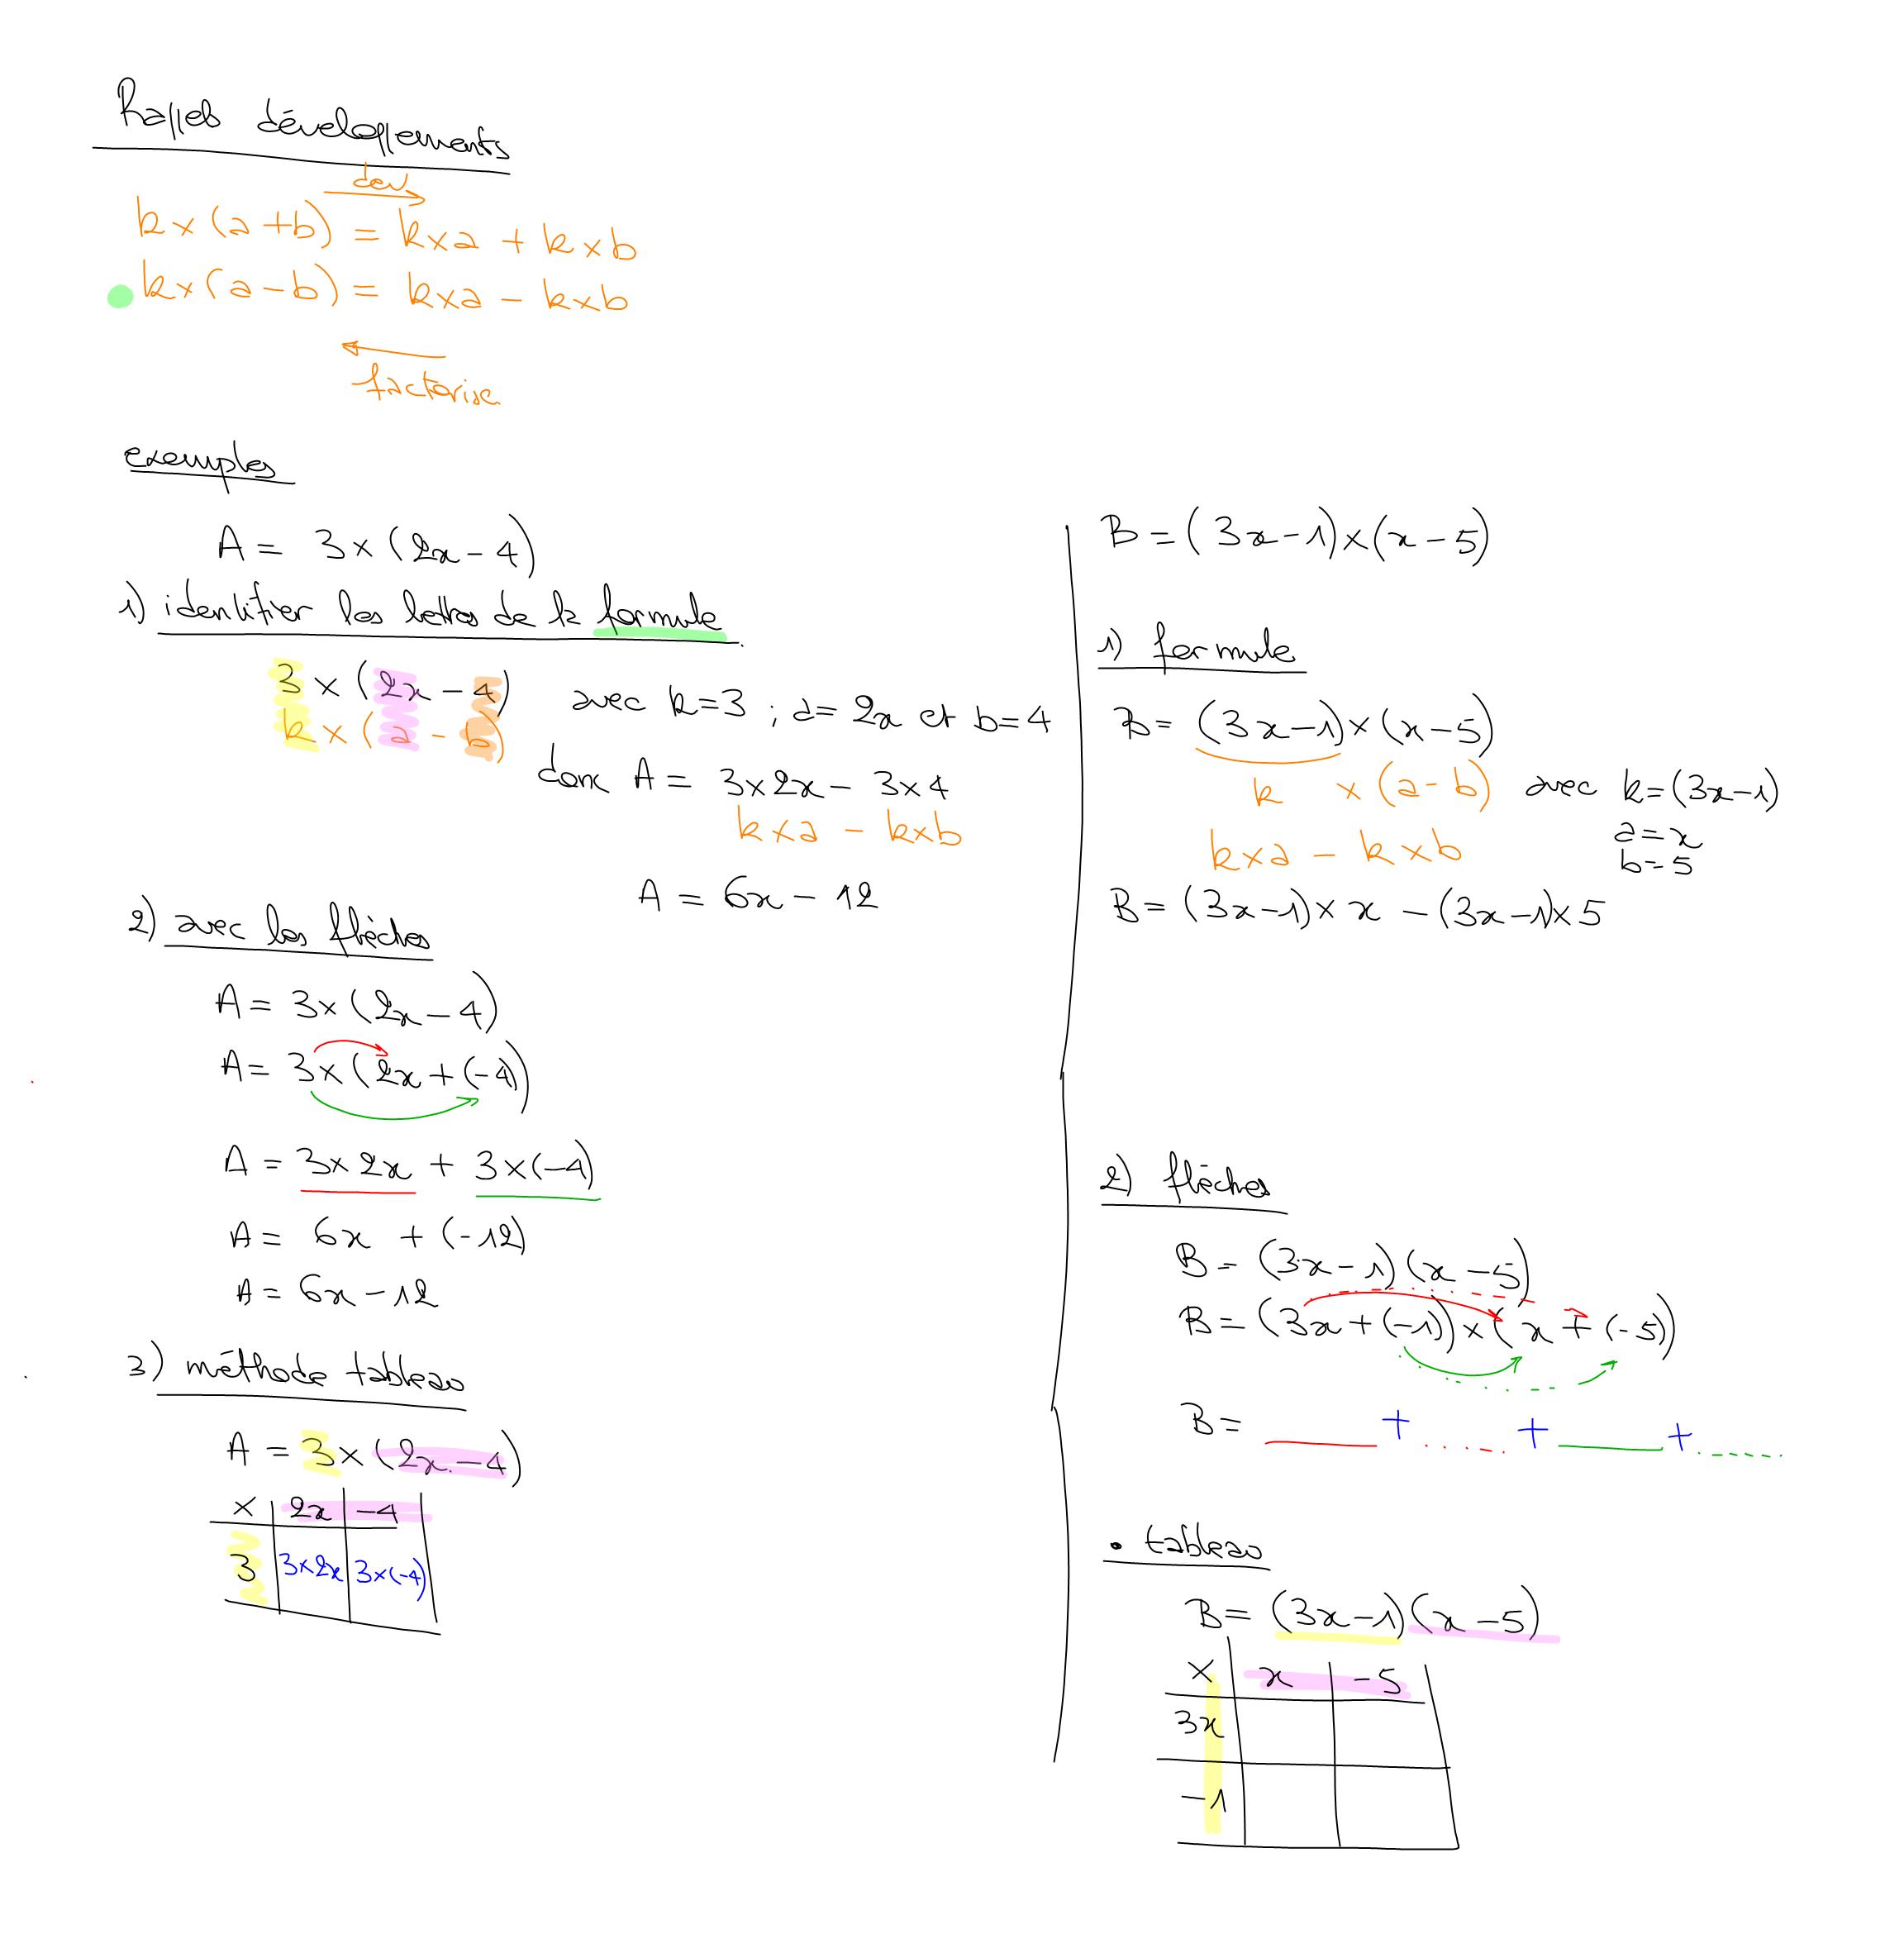 Rappels développements
dev
k×(a+b) = k×a + k×b
k×(a-b) = k×a - k×b
factorise
exemples
A = 3×(2x-4)
1) identifier les lettres de la formule.
3×(2x-4) avec k=3 ; a=2x et b=4
k×(a-b)
donc A = 3×2x - 3×4
k×a - k×b
A = 6x - 12
2) avec les flèches
A = 3×(2x-4)
A = 3×(2x+(-4))
A = 3×2x + 3×(-4)
A = 6x + (-12)
A = 6x-12
3) méthode tableau
A = 3×(2x-4)
× 2x -4
3 3×2x 3×(-4)
B = (3x-1)×(x-5)
1) formule
B = (3x-1)×(x-5)
k ×(a-b) avec k=(3x-1)
a=x
k×a - k×b
b=5
B = (3x-1)×x - (3x-1)×5
2) flèches
B = (3x-1)(x-5)
B = (3x+(-1))×(x+(-5))
B = + + +
• tableau
B = (3x-1)(x-5)
× x -5
3x
-1